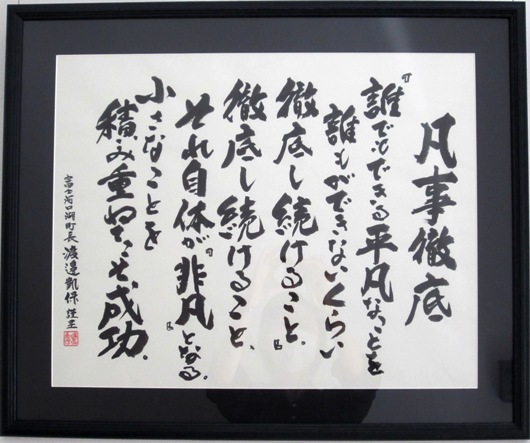 凡事徹底
『誰でもできる平凡なことを
誰もができないくらい
徹底し続けること。』
徹底し続けること、
それ自体が『非凡』となる。
小さなことを
積み重ねてこそ成功.
富士河口湖町長 渡邉凱保